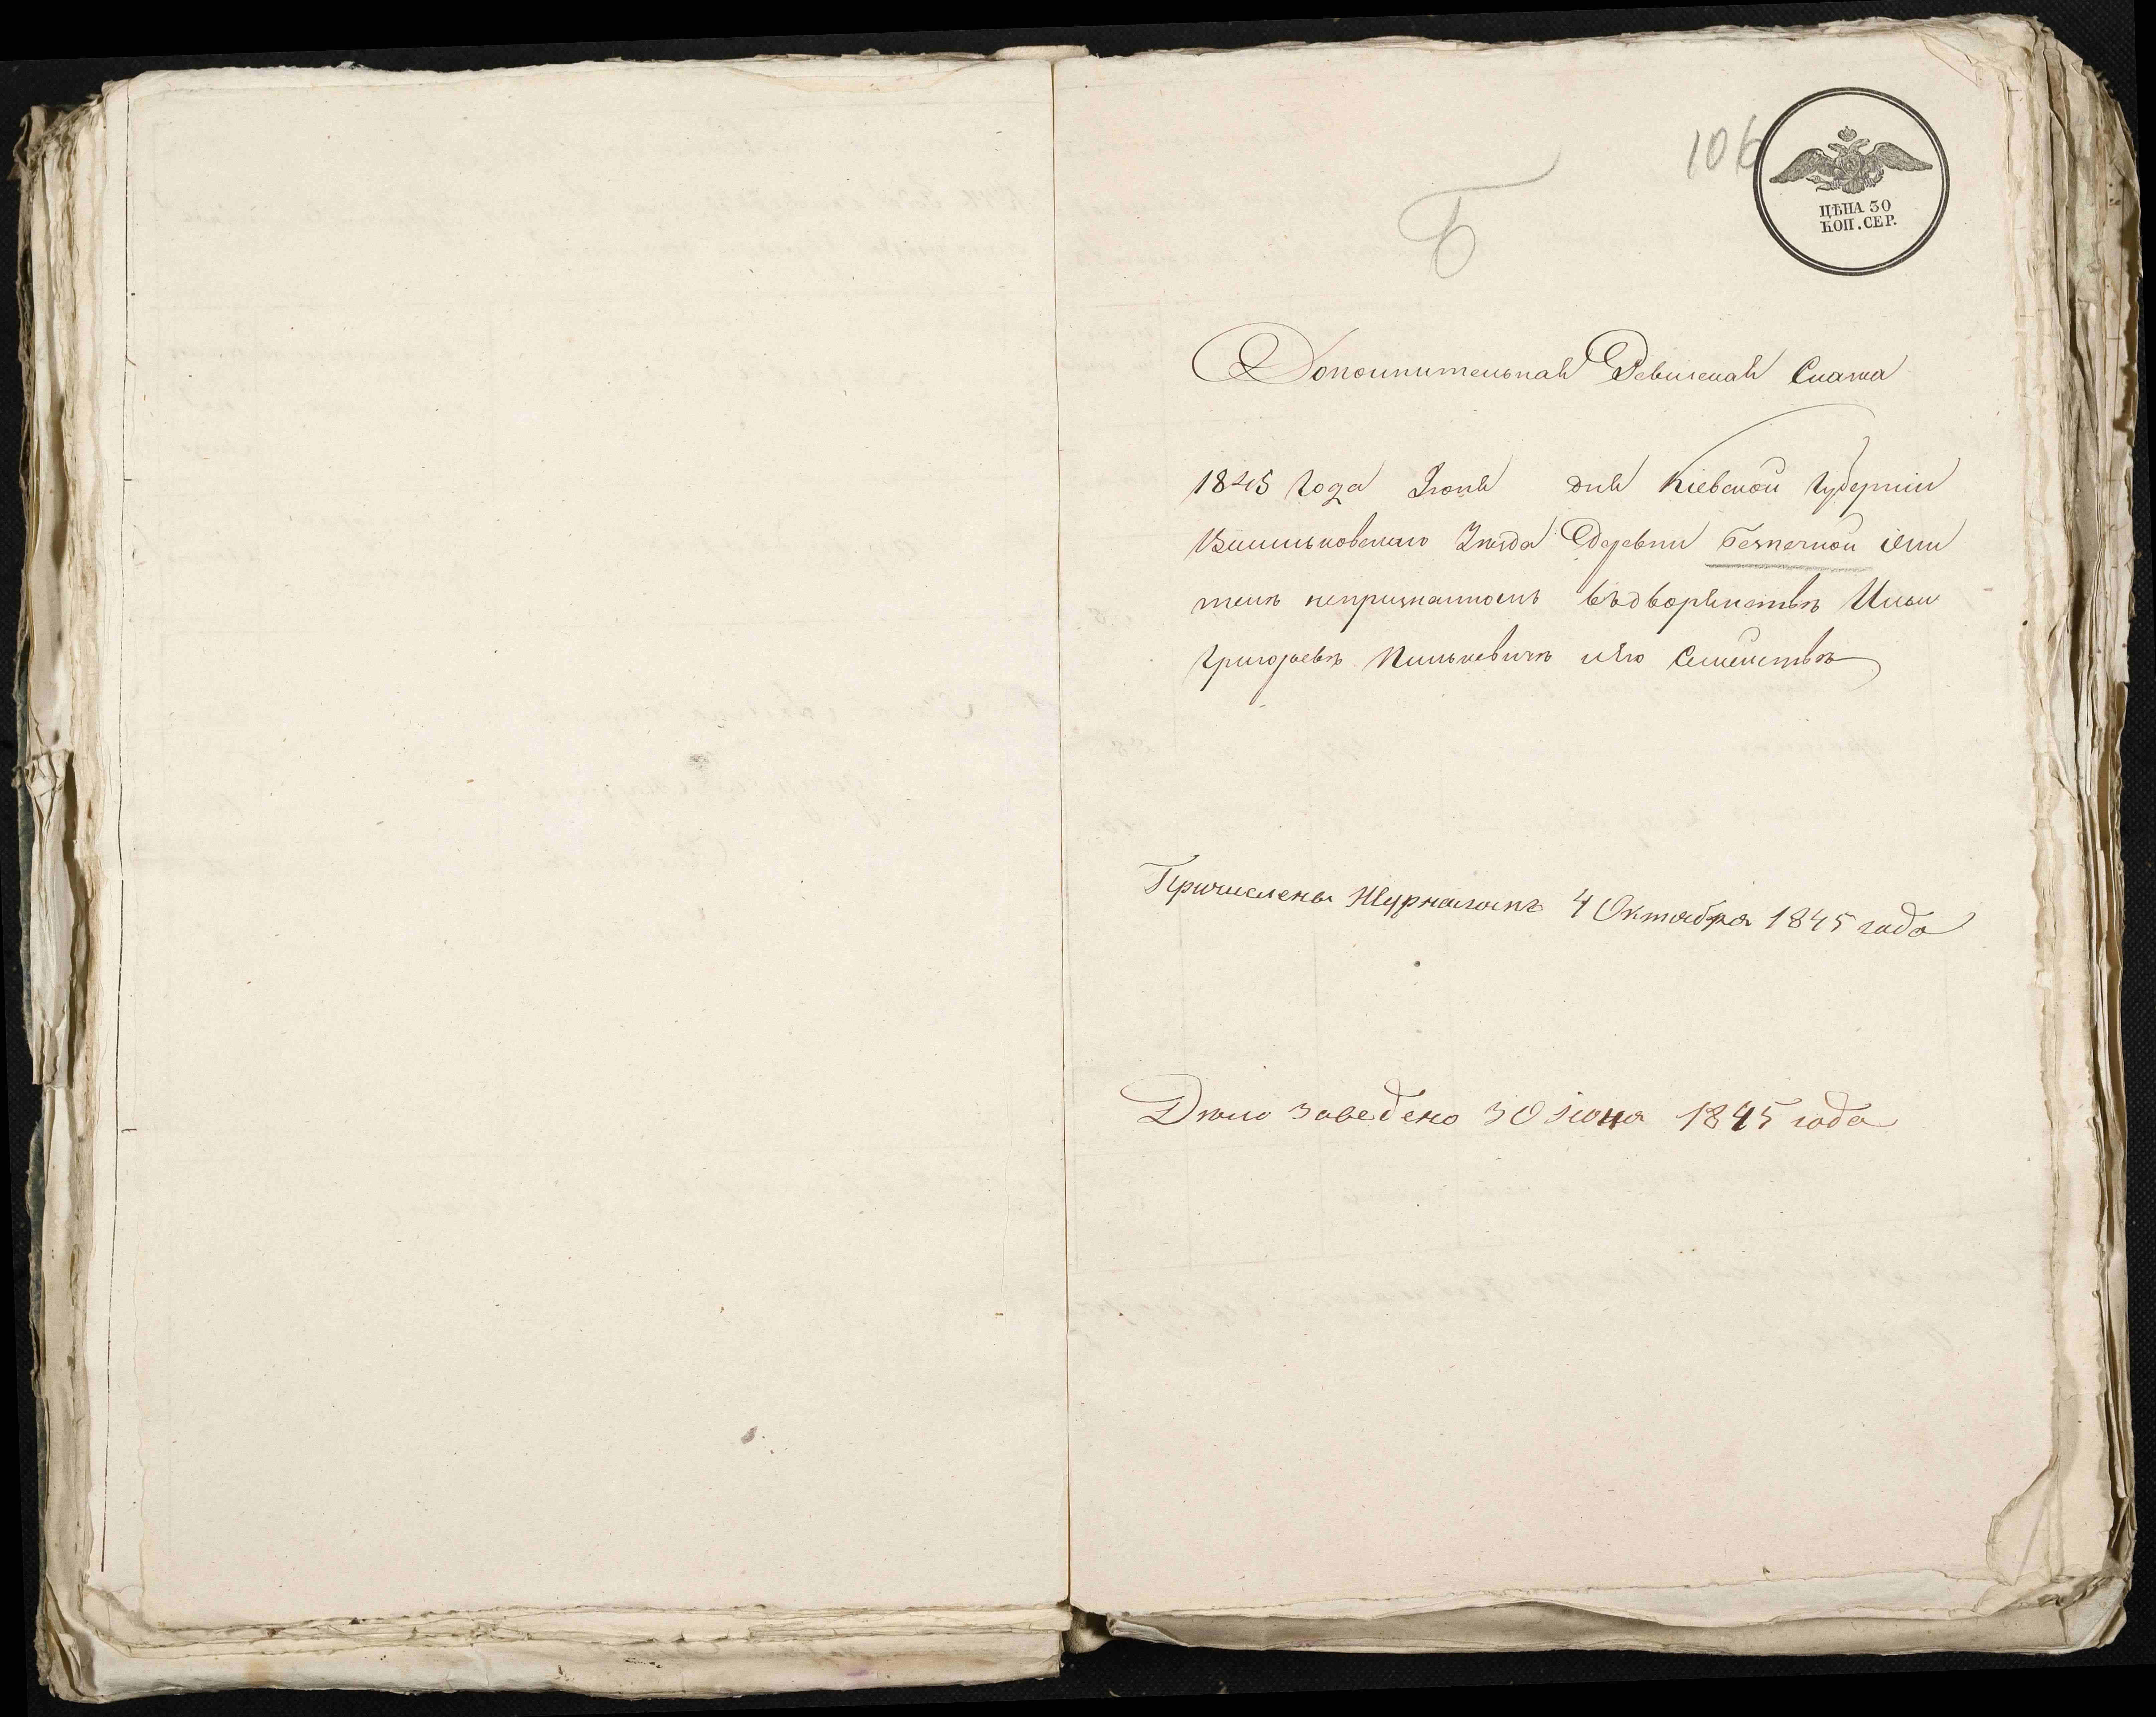 106
Б
ЦѢНА 30
КОП. СЕР.
Дополнительная Ревизская Сказка
1845 Года Іюня дня Кіевской Губерніи
Васильковскаго Уезда Деревни Безпечной Ожи
темъ непризнанномъ въ дворянствѣ Ильи
Григорьевѣ Пилькевичѣ и Его Семействѣ
Причислены Журналомъ 4 Октября 1845 года
Дѣло заведено 30 Іюня 1845 года